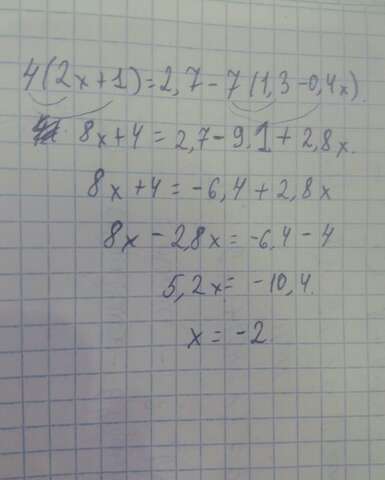 4(2x+1)=2,7-7(1,3-0,4x).
8x+4=2,7-9,1+2,8x.
8x+4=-6,4+2,8x
8x-2,8x=-6,4-4
5,2x=-10,4.
x=-2